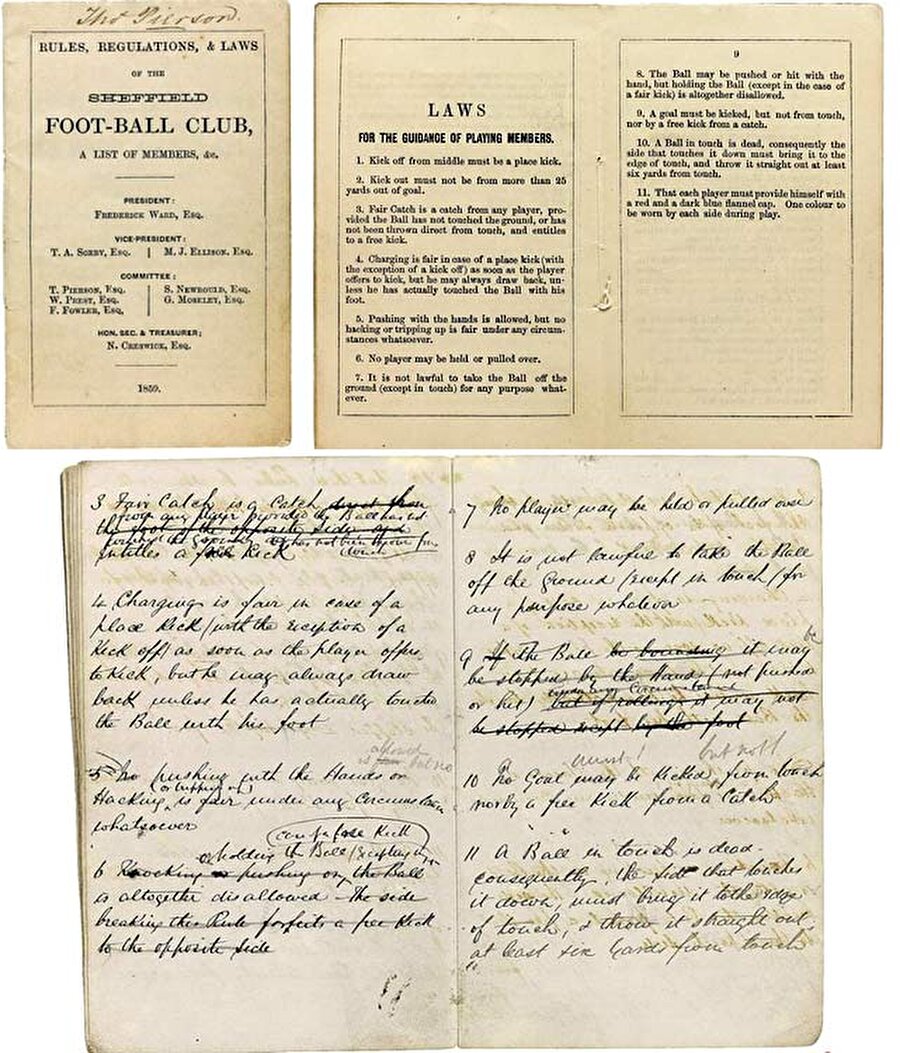 Thos Pierson.
RULES, REGULATIONS, & LAWS
OF THE
SHEFFIELD
FOOT-BALL CLUB,
A LIST OF MEMBERS, &c.
PRESIDENT:
FREDERICK WARD, ESQ.
VICE-PRESIDENT:
T. A. SORBY, ESQ. | M. J. ELLISON, ESQ.
COMMITTEE:
T. PIERSON, ESQ. S. NEWBOULD, ESQ.
W. PREST, ESQ. G. MOSELEY, ESQ.
F. FOWLER, ESQ.
HON. SEC. & TREASURER;
N. CRESWICK, ESQ.
1859.
LAWS
FOR THE GUIDANCE OF PLAYING MEMBERS.
1. Kick off from middle must be a place kick.
2. Kick out must not be from more than 25
yards out of goal.
3. Fair Catch is a catch from any player, pro-
vided the Ball has not touched the ground, or has
not been thrown direct from touch, and entitles
to a free kick.
4. Charging is fair in case of a place kick (with
the exception of a kick off) as soon as the player
offers to kick, but he may always draw back, un-
less he has actually touched the Ball with his
foot.
5. Pushing with the hands is allowed, but no
hacking or tripping up is fair under any circum-
stances whatsoever.
6. No player may be held or pulled over.
7. It is not lawful to take the Ball off the
ground (except in touch) for any purpose what-
ever.
9
8. The Ball may be pushed or hit with the
hand, but holding the Ball (except in the case of
a fair kick) is altogether disallowed.
9. A goal must be kicked, but not from touch,
nor by a free kick from a catch.
10. A Ball in touch is dead, consequently the
side that touches it down must bring it to the
edge of touch, and throw it straight out at least
six yards from touch.
11. That each player must provide himself with
a red and a dark blue flannel cap. One colour to
be worn by each side during play.
3 Fair Catch is a Catch
from any player provided the Ball has not
the foot of the opposite side and
entitles a free Kick
4 Charging is fair in case of a
place Kick (with the exception of a
Kick off) as soon as the player offers
to Kick, but he may always draw
back unless he has actually touched
the Ball with his foot
allowed
but no
5 No pushing with the Hands or
(or tripping up)
Hacking is fair under any Circumstances
whatsoever
Kick
holding the Ball
6 Knocking or pushing on the Ball
is altogether disallowed The side
breaking this Rule forfeits a free Kick
to the opposite side
7 No player may be held or pulled over
8 It is not lawful to take the Ball
off the Ground (except in touch) for
any purpose whatever
be
9 If the Ball be bounding it may
be stopped by the Hand (not pushed
or hit) but if rolling it may not
be stopped except by the foot
must but not
10 No Goal may be Kicked from touch
nor by a free Kick from a Catch
11 A Ball in touch is dead.
consequently the side that touches
it down, must bring it to the edge
of touch, & throw it straight out
at least six yards from touch